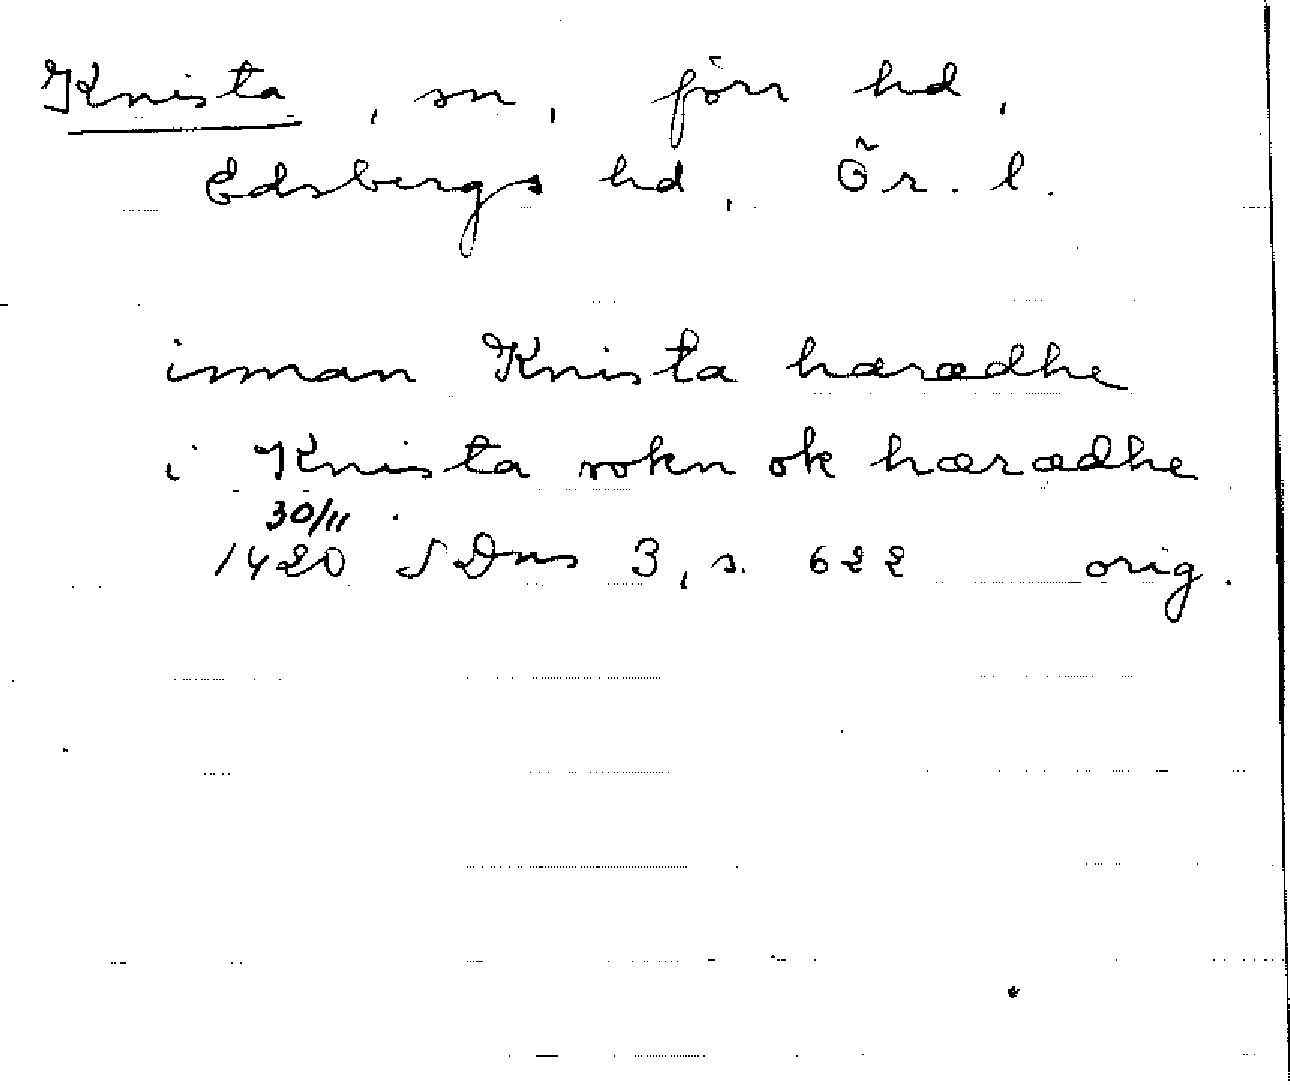 Knista, sn, förr hd,
Edsbergs hd, Ör. l.
innan Knista hæradhe
i Knista sokn ok hæradhe
30/11
1420 SDns 3, s. 622 orig.